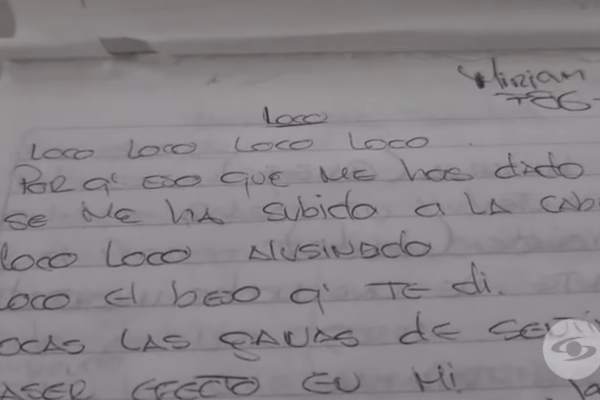 Mirjam
Loco
Loco Loco Loco Loco
POR q' ESO QUE ME has dado
SE ME HA Subido a LA CAB
Loco Loco ALUSINADO
OCO El beso q' TE di.
OCAS LAS GANAS dE SE
ASER EFECTO EN MI